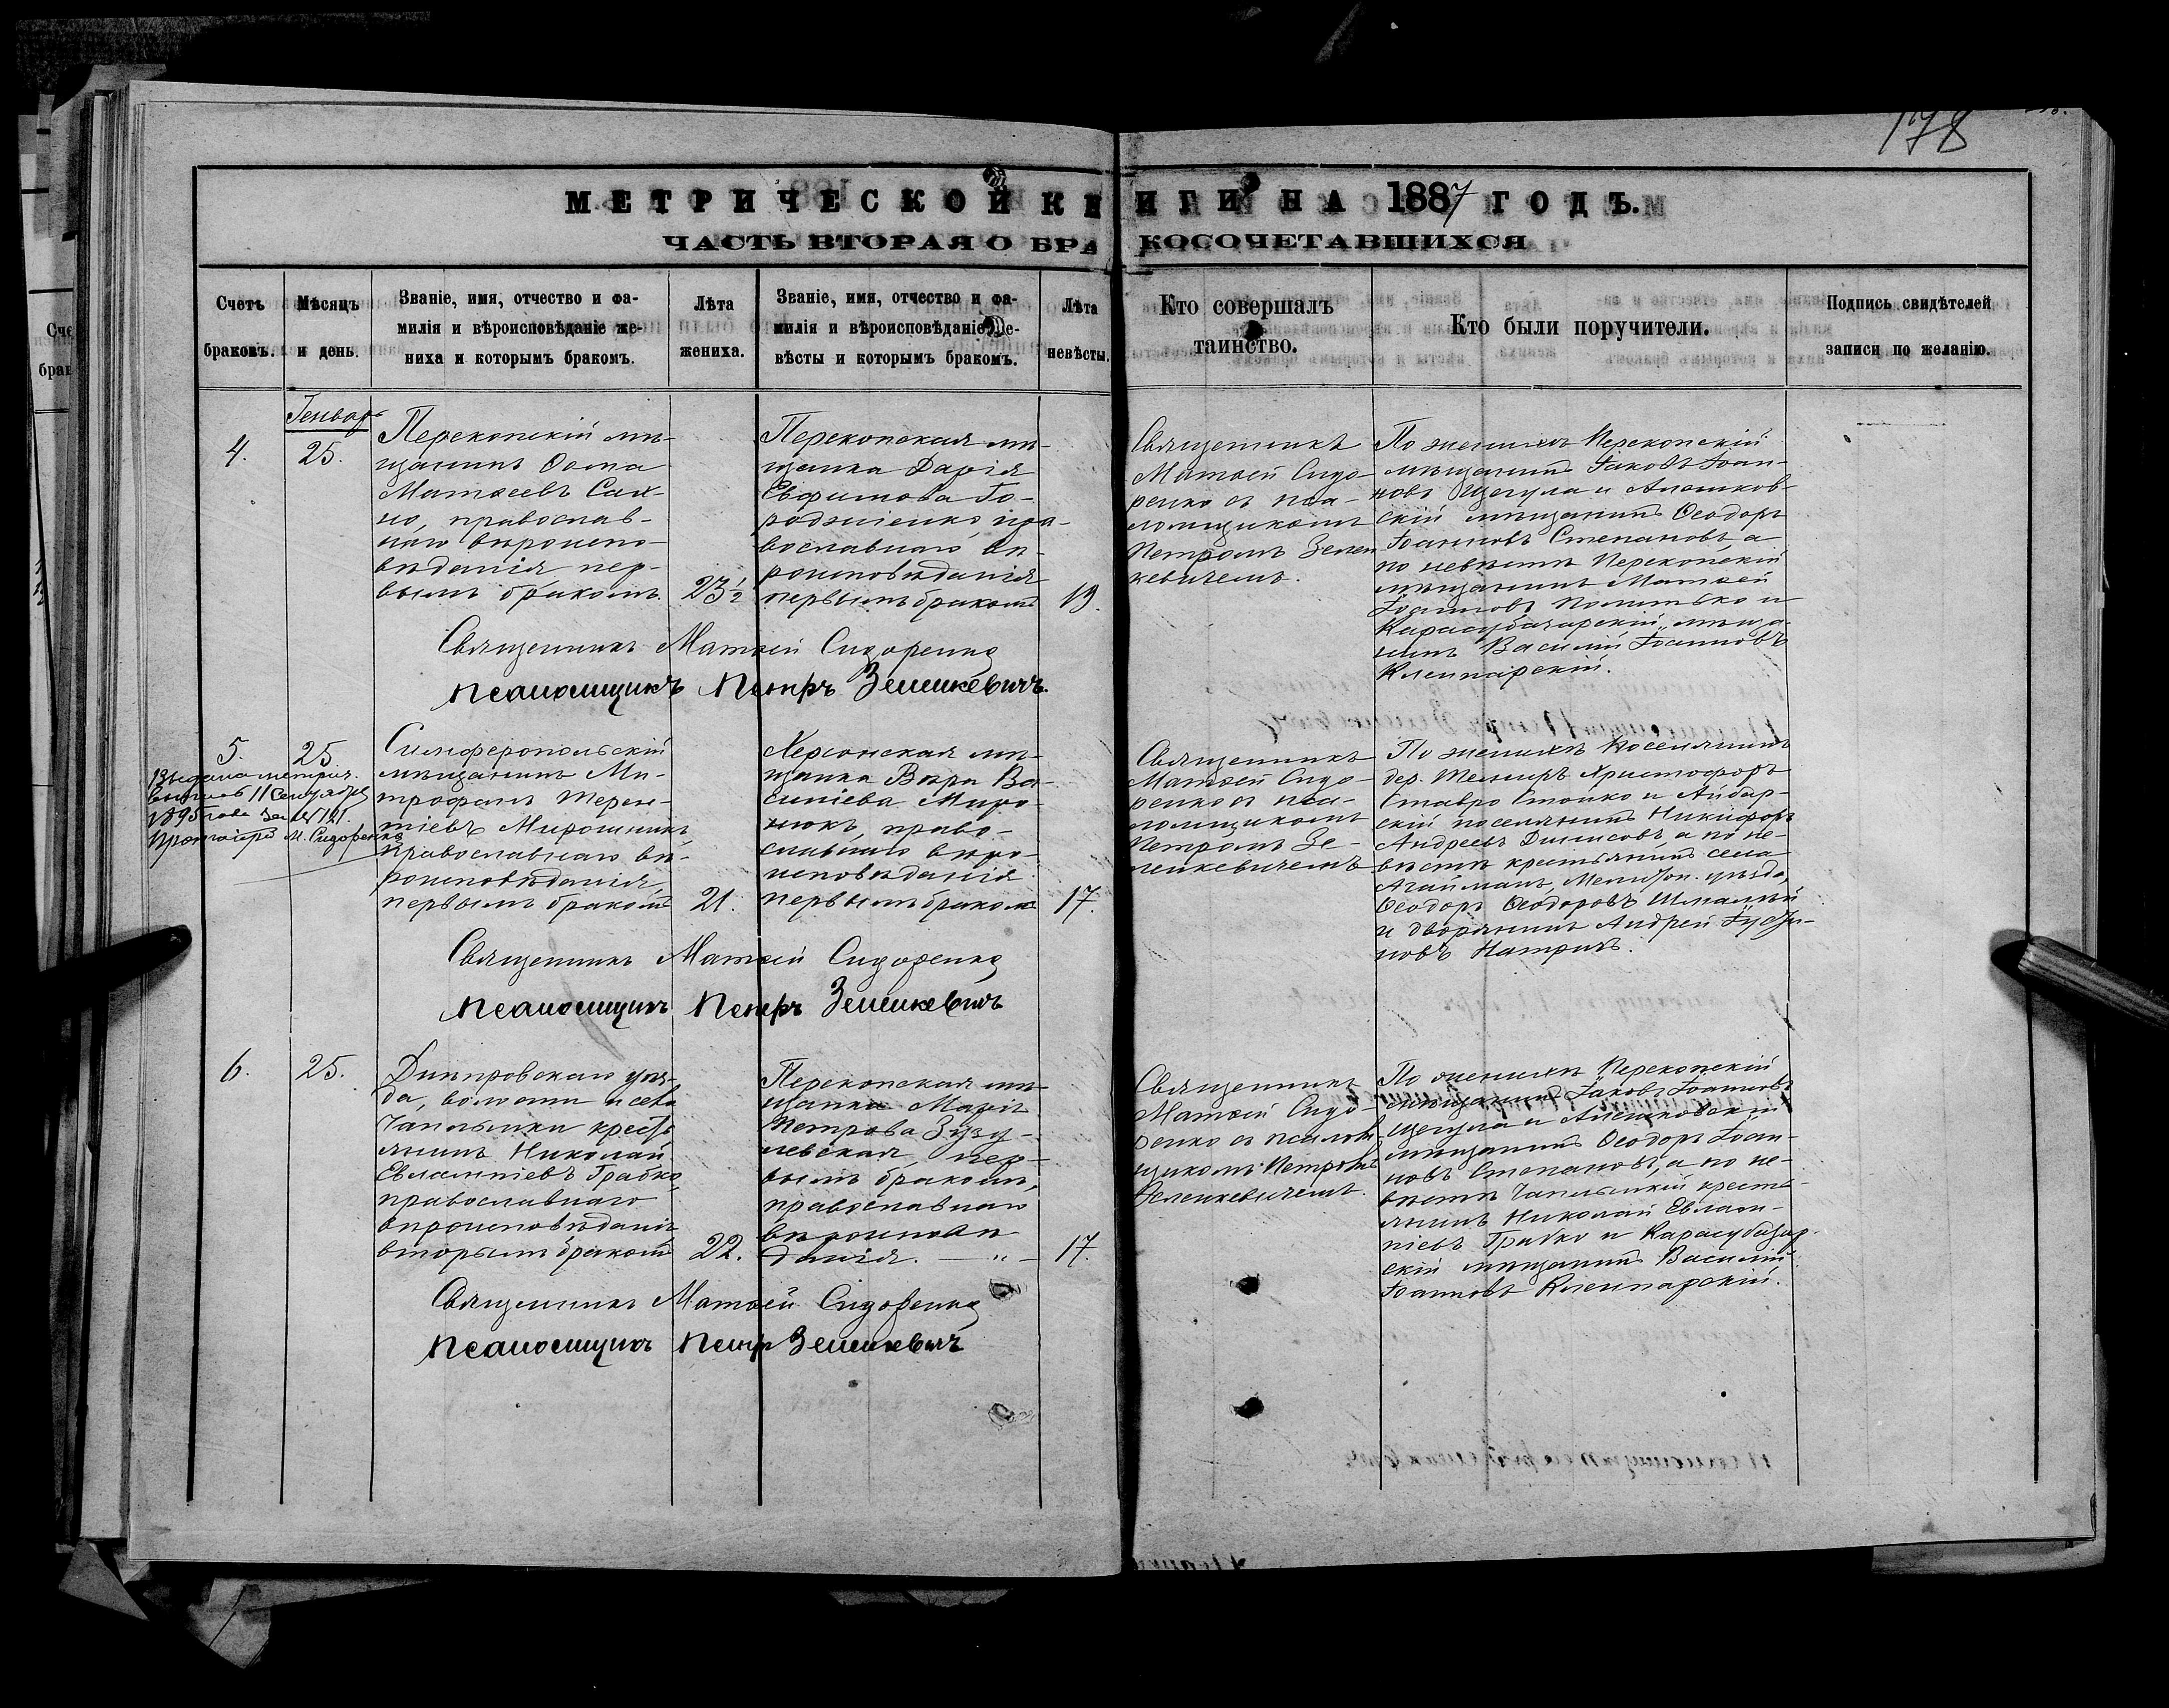 178
МЕТРИЧЕСКОЙ КНИГИ НА 1887 ГОДЪ.
ЧАСТЬ ВТОРАЯ О БРАКОСОЧЕТАВШИХСЯ
Счетъ
браковъ.
Мѣсяцъ
и день.
Званіе, имя, отчество и фа-
милія и вѣроисповѣданіе же-
ниха и которымъ бракомъ.
Лѣта
жениха.
Званіе, имя, отчество и фа-
милія и вѣроисповѣданіе не-
вѣсты и которымъ бракомъ.
Лѣта
невѣсты.
Кто совершалъ
таинство.
Кто были поручители.
Подпись свидѣтелей
записи по желанію.
4.
Генварь
25.
Перекопскій мѣ-
щанинъ Ѳома
Матѳеевъ Сах-
но, православ-
наго вѣроиспо-
вѣданія пер-
вымъ бракомъ.
23½
Перекопская мѣ-
щанка Дарія
Евфимова Го-
родниенко, пра-
вославнаго вѣ-
роисповѣданія
первымъ бракомъ
19.
Священникъ
Матѳей Сидо-
ренко съ пса-
ломщикомъ
Петромъ Зелен
кевичемъ.
По женихѣ Перекопскій
мѣщанинъ Іаковъ Іоан-
новъ Щегула и Алешков-
скій мѣщанинъ Ѳеодоръ
Іоанновъ Степановъ, а
по невѣстѣ Перекопскій
мѣщанинъ Матѳей
Іоанновъ Политько и
Карасубазарскій мѣща-
нинъ Василій Іоанновъ
Клепарскій.
Священникъ Матѳей Сидоренко
Псаломщикъ Петръ Зеленкевичъ.
5.
25.
Выдана метрич.
выпись 11 Сентября
1895 года за №121.
Протоіерей М. Сидоренко
Симферопольскій
мѣщанинъ Ми-
трофанъ Терен-
тіевъ Мирошникъ,
православнаго вѣ-
роисповѣданія,
первымъ бракомъ
21.
Херсонская мѣ-
щанка Вѣра Ва-
силіева Миро-
нюкъ, право-
славнаго вѣро-
исповѣданія
первымъ бракомъ
17.
Священникъ
Матѳей Сидо-
ренко съ пса-
ломщикомъ
Петромъ Зе-
ленкевичемъ
По женихѣ поселянинъ
дер. Темиръ Христофоръ
Ставро Стойко и Айбар-
скій поселянинъ Никифоръ
Андреевъ Дынисовъ, а по не-
вѣстѣ крестьянинъ села
Агайманъ, Мелитоп. уѣзда,
Ѳеодоръ Ѳеодоровъ Шмалий
и дворянинъ Андрей Іусти-
новъ Натринъ.
Священникъ Матѳей Сидоренко
Псаломщикъ Петръ Зеленкевичъ
6.
25.
Днѣпровскаго уѣз-
да, волости и села
Чаплынки кресть
янинъ Николай
Евлампіевъ Грабко,
православнаго
вѣроисповѣданія,
вторымъ бракомъ
22.
Перекопская мѣ-
щанка Марія
Петрова Зузу-
левская, пер-
вымъ бракомъ,
православнаго
вѣроисповѣ
данія. — „ —
17.
Священникъ
Матѳей Сидо-
ренко съ псалом-
щикомъ Петромъ
Зеленкевичемъ.
По женихѣ Перекопскій
мѣщанинъ Іаковъ Іоанновъ
Щегула и Алешковскій
мѣщанинъ Ѳеодоръ Іоан-
новъ Степановъ, а по не-
вѣстѣ Чаплынскій кресть-
янинъ Николай Евлам-
піевъ Грабко и Карасубазар-
скій мѣщанинъ Василій
Іоанновъ Клепарскій.
Священникъ Матѳей Сидоренко
Псаломщикъ Петръ Зеленкевичъ